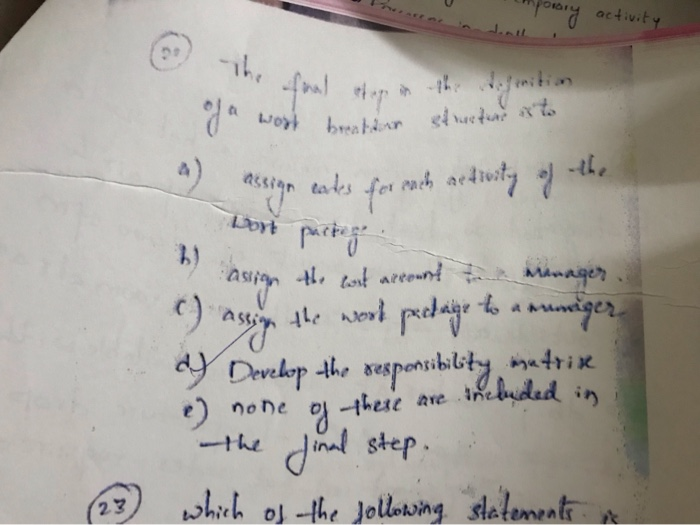 temporary activity
22 The final step in the definition
of a work breakdown structure is to
a) assign codes for each activity of the
work package.
b) assign the cost account to a manager.
c) assign the work package to a manager
d) Develop the responsibility matrix
e) none of these are included in
the final step.
23 which of the following statements is